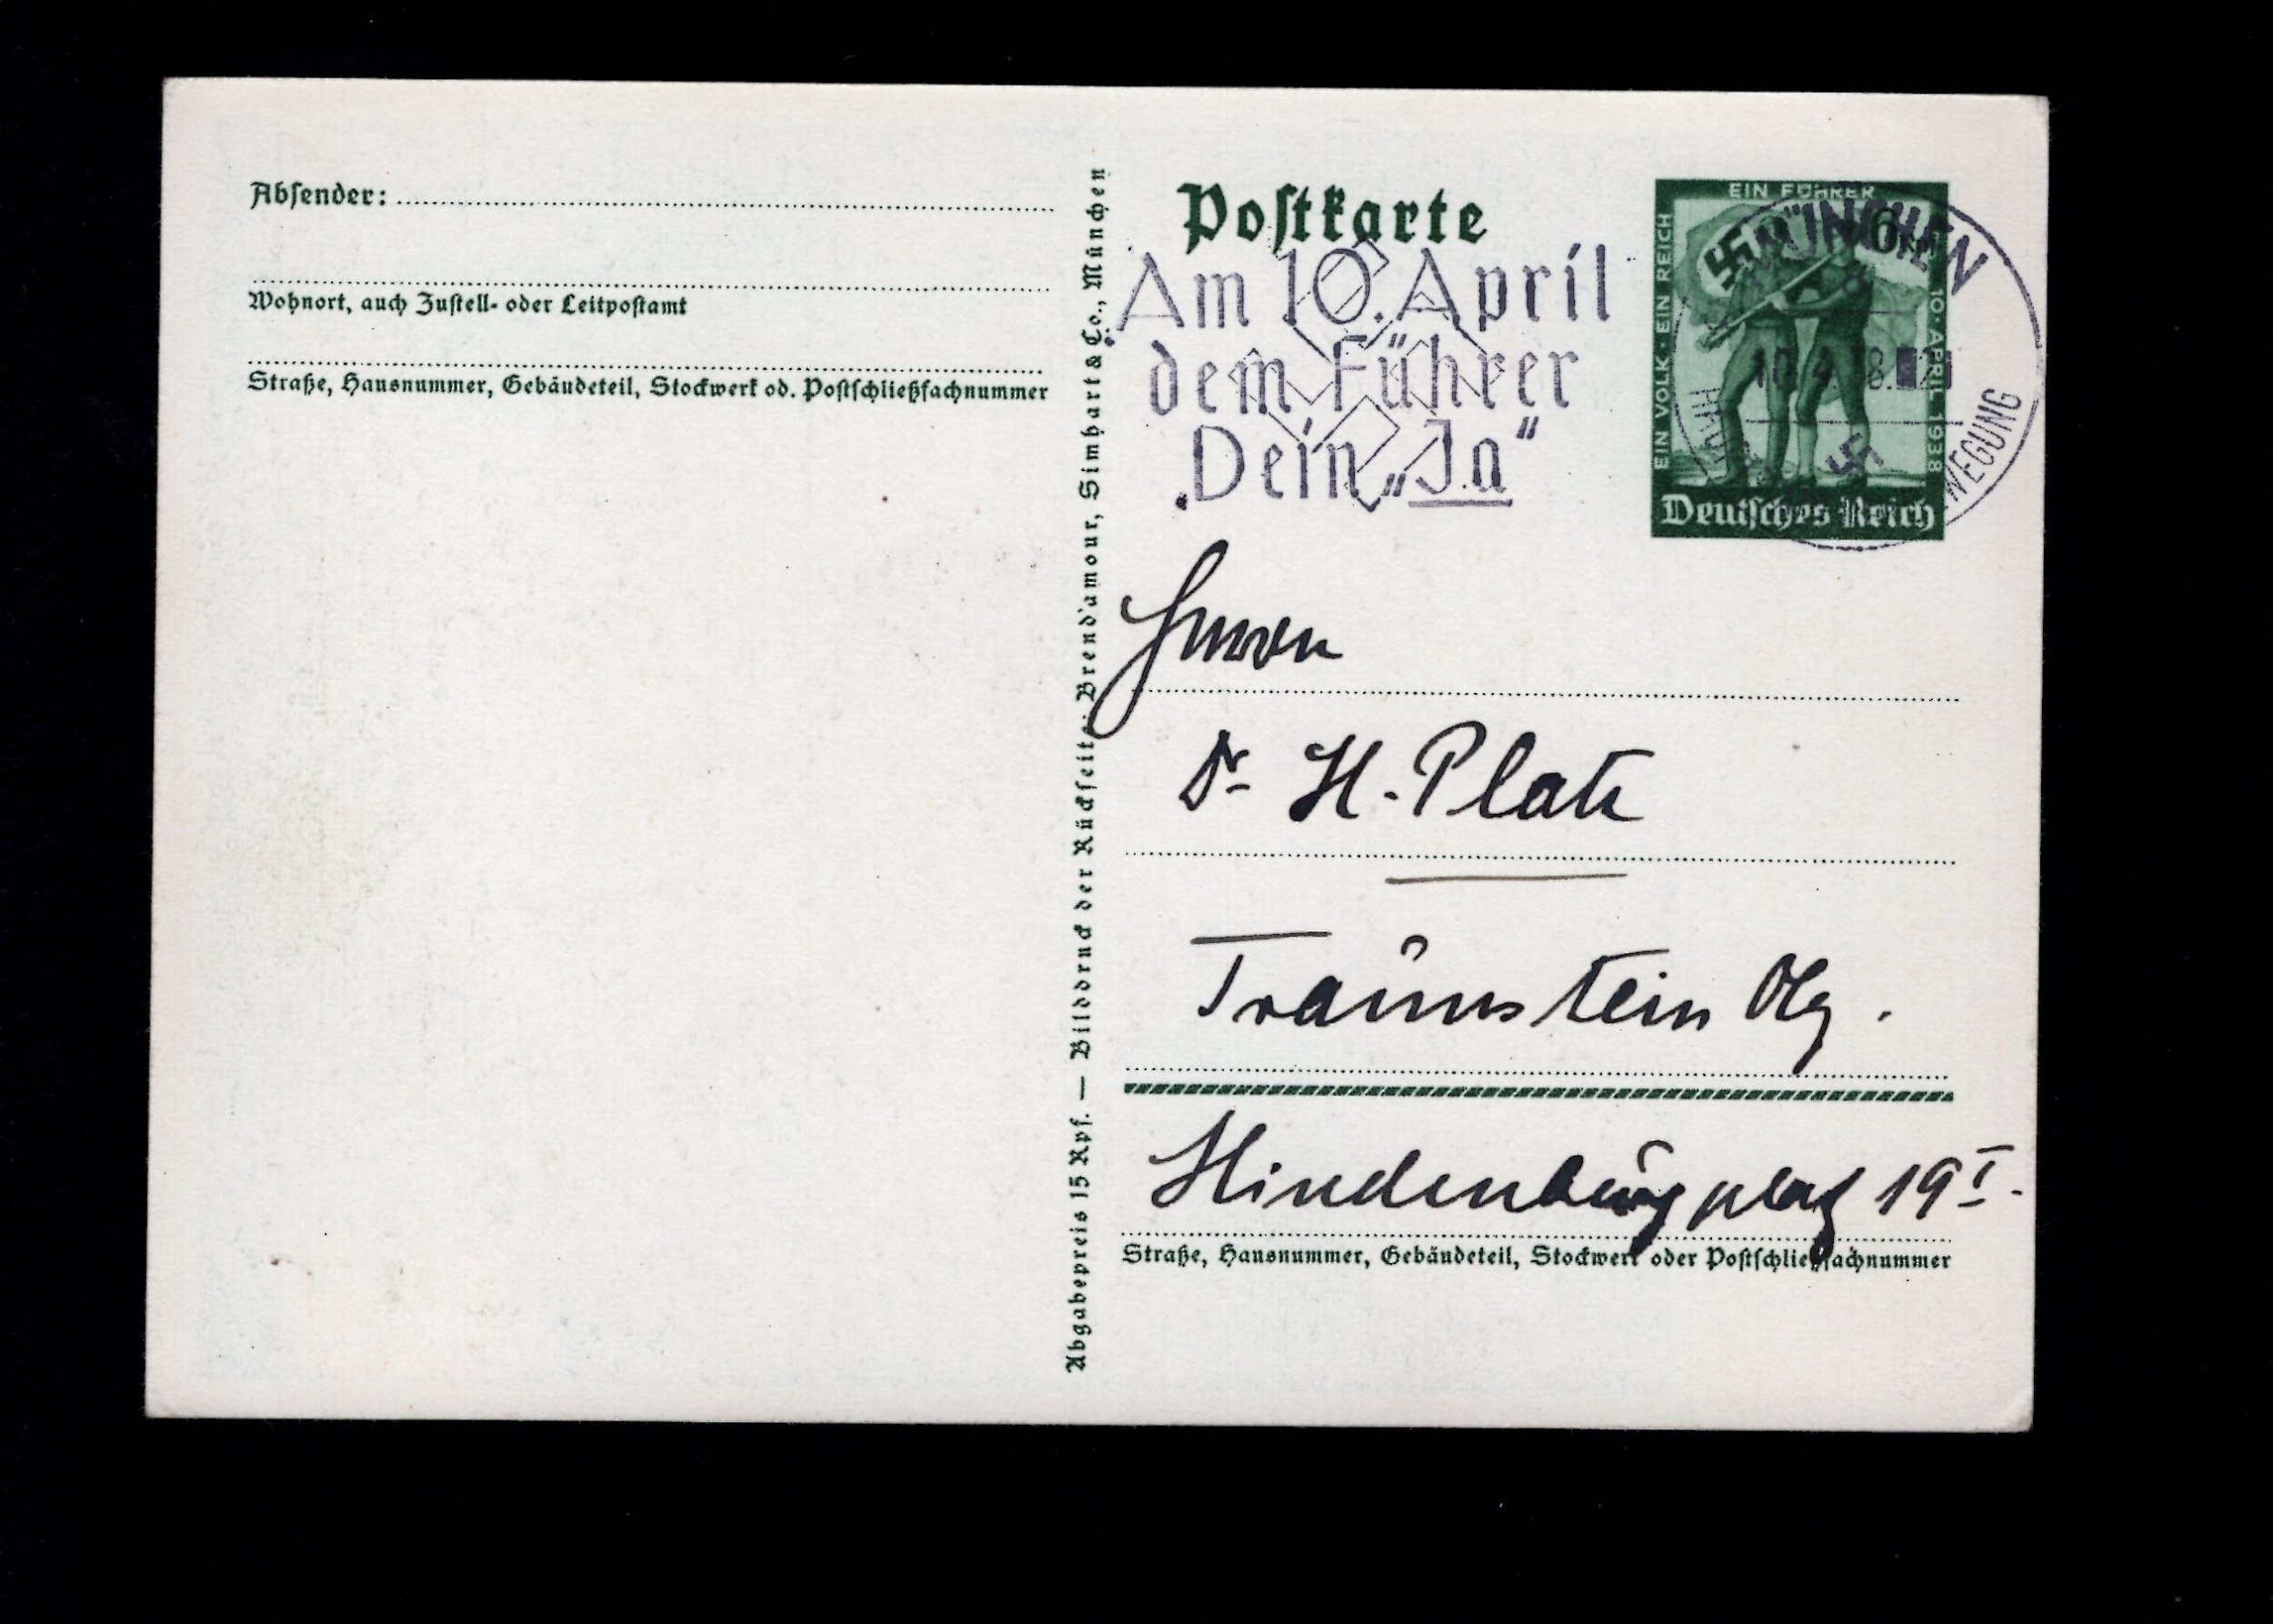 Absender:
Wohnort, auch Zustell- oder Leitpostamt
Straße, Hausnummer, Gebäudeteil, Stockwerk od. Postschließfachnummer
Abgabepreis 15 Rpf. — Bilddruck der Rückseite: Brend'amour, Simhart & Co., München
Postkarte
Am 10. April
dem Führer
Dein „Ja“
EIN VOLK · EIN REICH
EIN FÜHRER
10 · APRIL 1938
6
Deutsches Reich
MÜNCHEN
Herrn
Dr H. Platz
Traunstein Obg.
Hindenburgplatz 19 I.
Straße, Hausnummer, Gebäudeteil, Stockwerk oder Postschließfachnummer